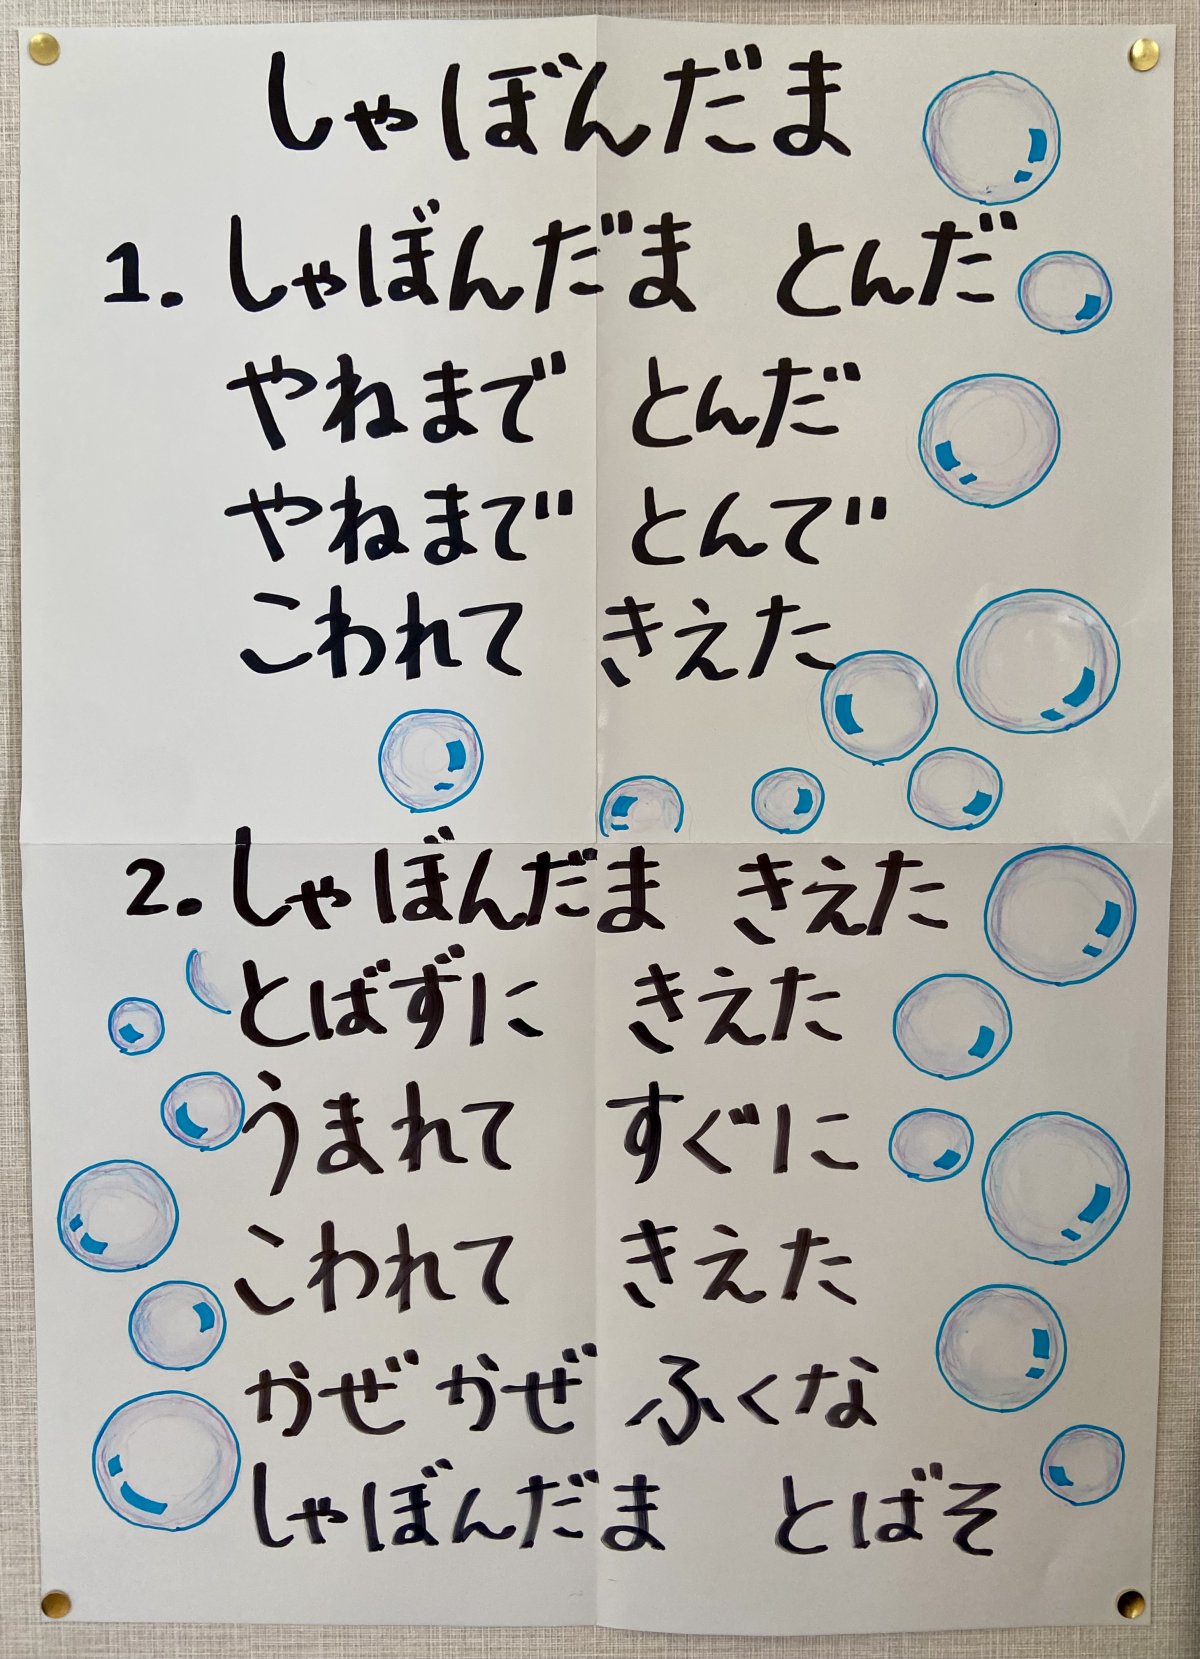 しゃぼんだま
1. しゃぼんだま とんだ
やねまで とんだ
やねまで とんで
こわれて きえた
2. しゃぼんだま きえた
とばずに きえた
うまれて すぐに
こわれて きえた
かぜかぜ ふくな
しゃぼんだま とばそ